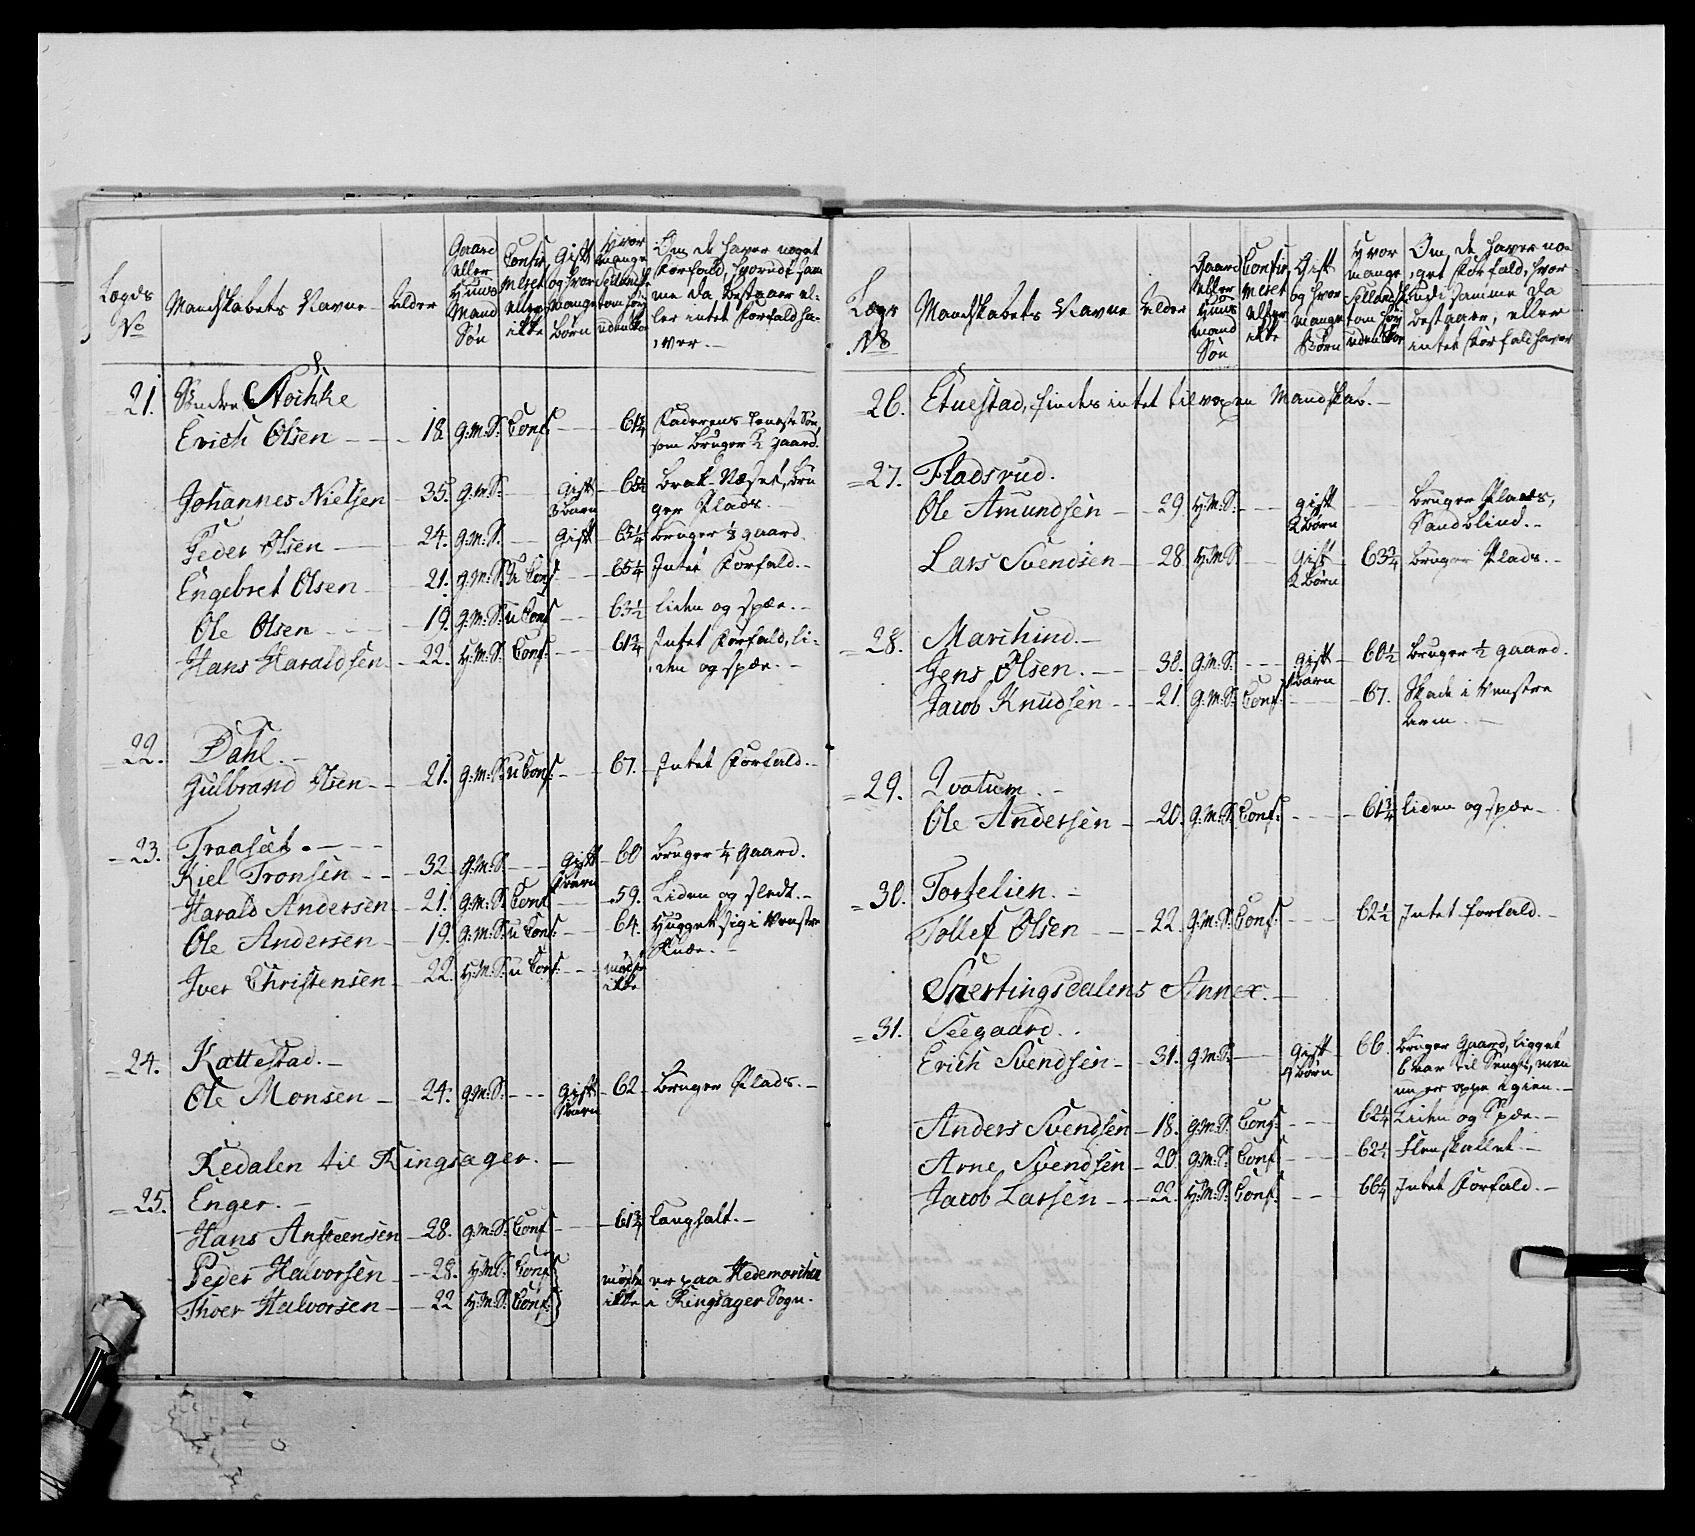 Lægds No
Mandskabets Navne
Alder
Gaard eller Huus Mand Søn
Confirmeret eller ikke
Gift og hvor mange børn
Hvor mange Sellandske tom høy uden Skoe
Om de haver noget Forfald, hvorudi samme da bestaaer eller intet Forfald haver.
21. Søndre
Erich Olsen 18. G.M.S. Conf: 61 3/4 Faderens eneste Søn, som bruger 1/2 gaard.
Johannes Nielsen 35. G.M.S. Gift 3 barn 65 1/4 brak-Næset, bruger Plads.
Peder Olsen 24. G.M.S. Gift 65 1/4 bruger 1/2 gaard.
Engebret Olsen 21. G.M.S. U Conf 65 1/4 Intet Forfald.
Ole Olsen 19. G.M.S. u Conf 63 1/2 liden og spæe.
Hans Haraldsen 22. H.M.S. Conf: 61 3/4 Intet Forfald, liden og spæe.
22. Dahl.
Gulbrand Olsen 21. G.M.S. u Conf: 67. Intet Forfald.
23. Traaset.
Kiel Tronsen 32. G.M.S. Gift barn 60 bruger 1/4 Gaard.
Harald Andersen 21. G.M.S. Conf 59. Liden og sledt.
Ole Andersen 19. G.M.S. u Conf: 64. Hugget sig i venstre Knæe.
Iver Christensen 22. H.M.S. u Conf. mødte ikke
24. Kattestad.
Ole Monsen 24. G.M.S. Gift barn 62 bruger Plads.
Redalen til Ringsager.
25. Enger.
Hans Ansteensen 28. G.M.S. Conf 61 3/4 langhalt.
Peder Halvorsen 28. H.M.S. Conf:
Thoer Halvorsen 22 H.M.S. Conf: mødte ikke er paa Hedemarchen i Ringsager Sogn.
Lægs No
Mandskabets Navne
Alder
Gaard eller Huus mand Søn
Confirmeret eller ikke
Gift og hvor mange Børn
Hvor mange Sellandske tom høy uden Skoe
Om de haver noget Forfald, hvorudi samme da bestaaer, eller intet Forfald haver
26. Etuestad, findes intet tilvoxen Mandskab.
27. Fladsrud.
Ole Amundsen 29 H.M.S. gift 2 børn bruger Plads, Sandblind.
Lars Svendsen 28. H.M.S. Gift 2 børn 63 3/4 bruger Plads.
28. Marihind.
Jens Olsen 38. G.M.S. gift barn 60 1/2 bruger 1/2 gaard.
Jacob Knudsen 21. G.M.S. Conf: 67. Skade i Venstre Arm.
29. Qvatum.
Ole Andersen 20. G.M.S. Conf: 61 3/4 liden og spæe
30. Tortelien.
Tollef Olsen 22. G.M.S. Conf: 62 1/2 Intet forfald.
Snertingsdalens Annex.
31. Seegaard.
Erich Svendsen 31. G.M.S. Gift børn 66 bruger Gaard, ligget 6 aar til Sengs, men nu er oppe igien.
Anders Svendsen 18. G.M.S. Conf: 62 1/4 Liden og Spæe.
Arne Svendsen 20. G.M.S. Conf 62 1/2 Fleenskallet.
Jacob Larsen 22. H.M.S. Conf: 66 1/4 Intet Forfald.